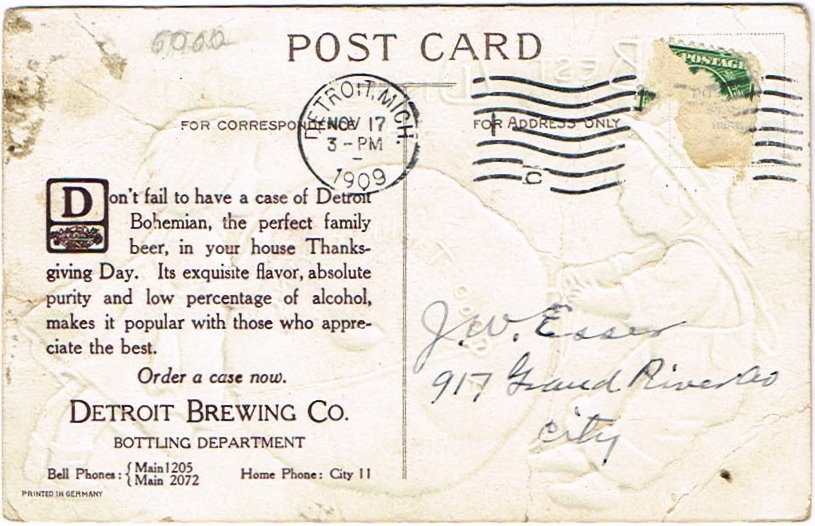 6060
POST CARD
POSTAGE
DETROIT, MICH.
NOV 17
3 - PM
1909
FOR CORRESPONDENCE
FOR ADDRESS ONLY
Don't fail to have a case of Detroit
Bohemian, the perfect family
beer, in your house Thanks-
giving Day. Its exquisite flavor, absolute
purity and low percentage of alcohol,
makes it popular with those who appre-
ciate the best.
Order a case now.
DETROIT BREWING CO.
BOTTLING DEPARTMENT
Bell Phones: { Main 1205
Main 2072
Home Phone: City 11
PRINTED IN GERMANY
J. W. Esser
917 Grand River Av
City